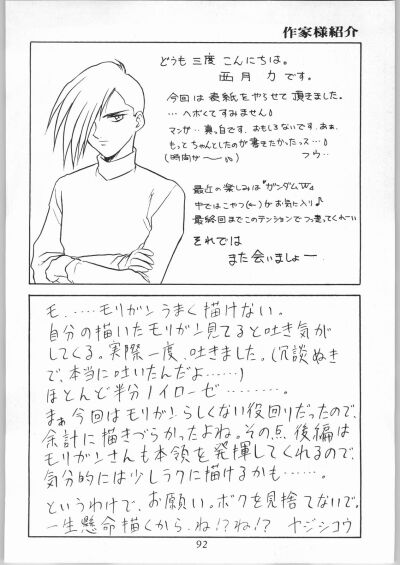 作家様紹介
どうも三度こんにちは。
西月力です。
今回は表紙をやらせて頂きました。
…ヘボくてすみません♪
マンガ…真っ白です、おもしろないです、あぁ、
もっとちゃんとしたのが書きたかったっス…♪
(時間が〜
最近の楽しみは『ガンダムW』
中ではこやつ(←)がお気に入り♪
最終回までこのテンションでつっ走ってくれーい
それでは
また会いましょー
モ……モリガンうまく描けない。
自分の描いたモリガン見てると吐き気が
してくる。実際一度、吐きました。(冗談ぬき
で、本当に吐いたんだよ……)
ほとんど半分ノイローゼ………。
まぁ今回はモリガンらしくない役回りだったので、
余計に描きづらかったよね。その点、後編は
モリガンさんも本領を発揮してくれるので、
気分的には少しラクに描けるかも……。
というわけで、お願い。ボクを見捨てないで。
一生懸命描くから、ね!?ね!? ヤジシコウ
92